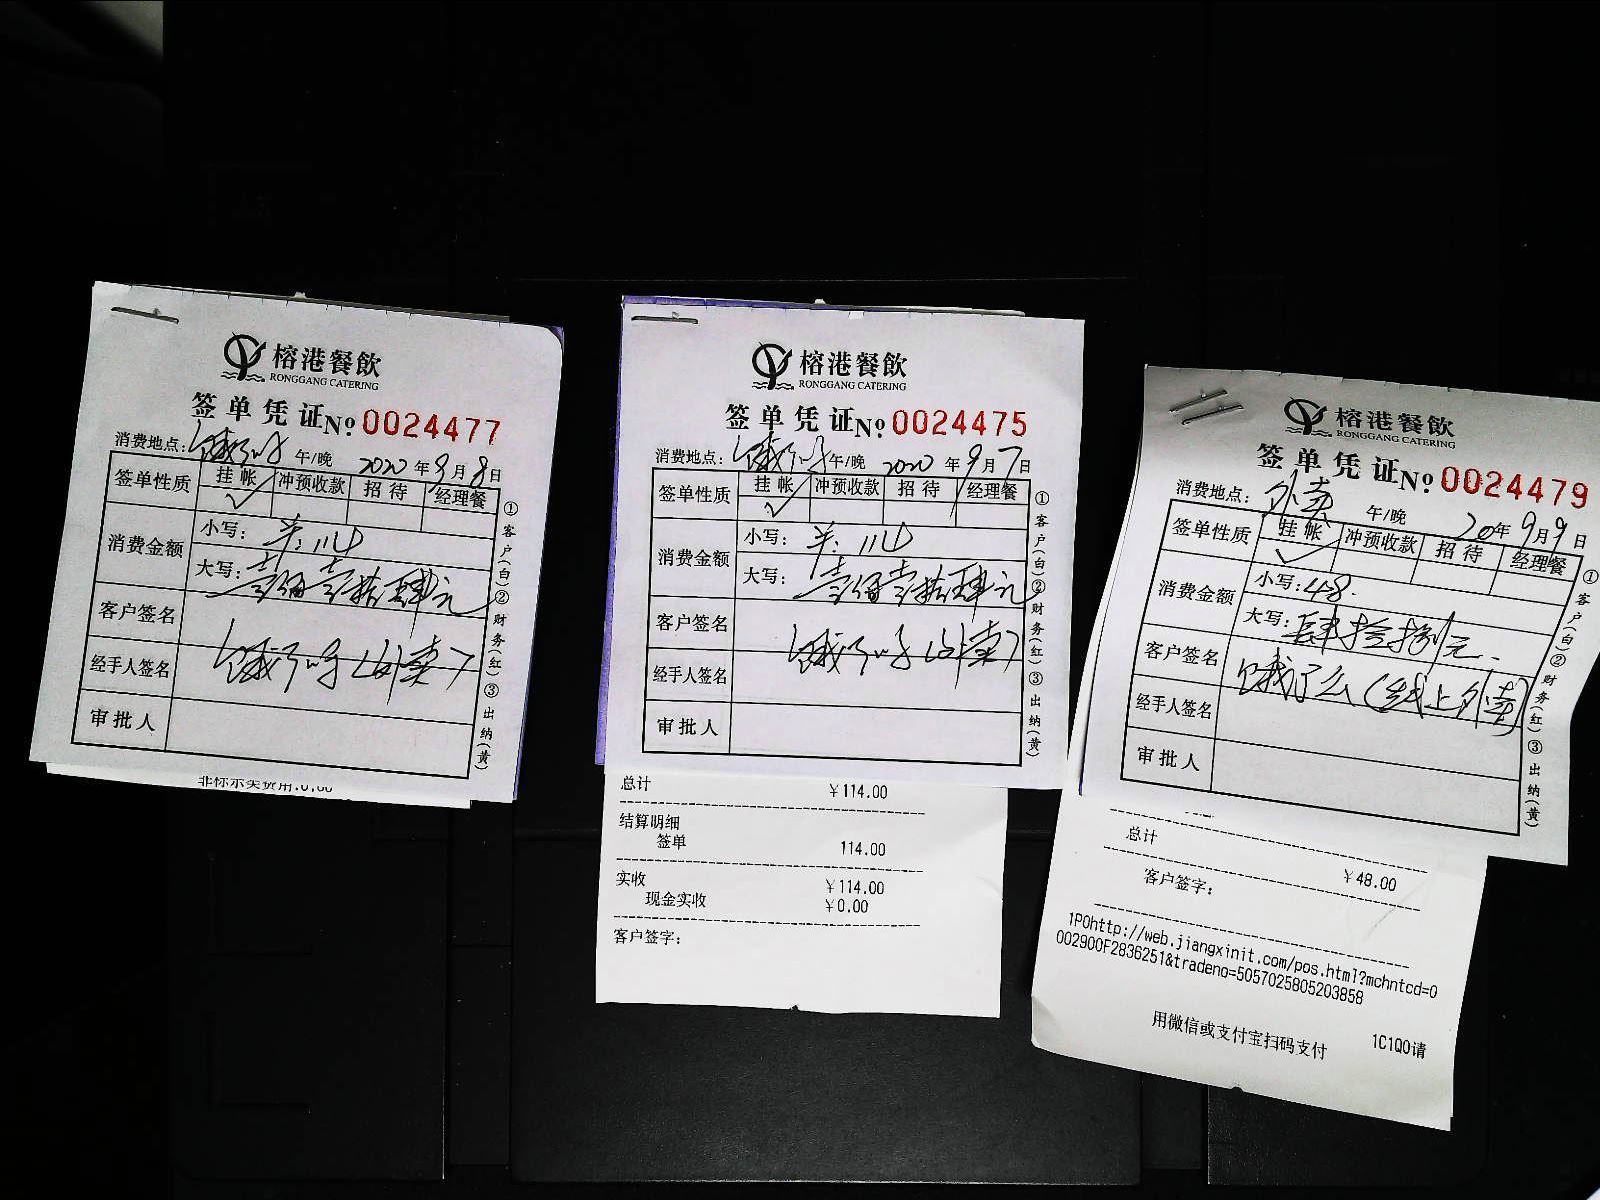 榕港餐飲
RONGGANG CATERING
签单凭证No 0024477
消费地点：饿了么 午/晚 2020年9月8日
签单性质 挂帐 冲预收款 招待 经理餐
✓
消费金额 小写：¥:114
大写：壹佰壹拾肆元
客户签名
饿了么(外卖)
经手人签名
审批人
①客户(白)②财务(红)③出纳(黄)
非标示类费用:0.00
榕港餐飲
RONGGANG CATERING
签单凭证No 0024475
消费地点：饿了么 午/晚 2020年9月7日
签单性质 挂帐 冲预收款 招待 经理餐
✓
消费金额 小写：¥:114
大写：壹佰壹拾肆元
客户签名
饿了么(外卖)
经手人签名
审批人
①客户(白)②财务(红)③出纳(黄)
总计 ¥114.00
结算明细
签单 114.00
实收 ¥114.00
现金实收 ¥0.00
客户签字：
榕港餐飲
RONGGANG CATERING
签单凭证No 0024479
消费地点：外卖 午/晚 20年9月9日
签单性质 挂帐 冲预收款 招待 经理餐
✓
消费金额 小写：48.
大写：肆拾捌元.
客户签名
饿了么(线上外卖)
经手人签名
审批人
①客户(白)②财务(红)③出纳(黄)
总计 ¥48.00
客户签字：
1P0http://web.jiangxinit.com/pos.html?mchntcd=0
002900F2836251&tradeno=5057025805203858
1C1Q0请
用微信或支付宝扫码支付